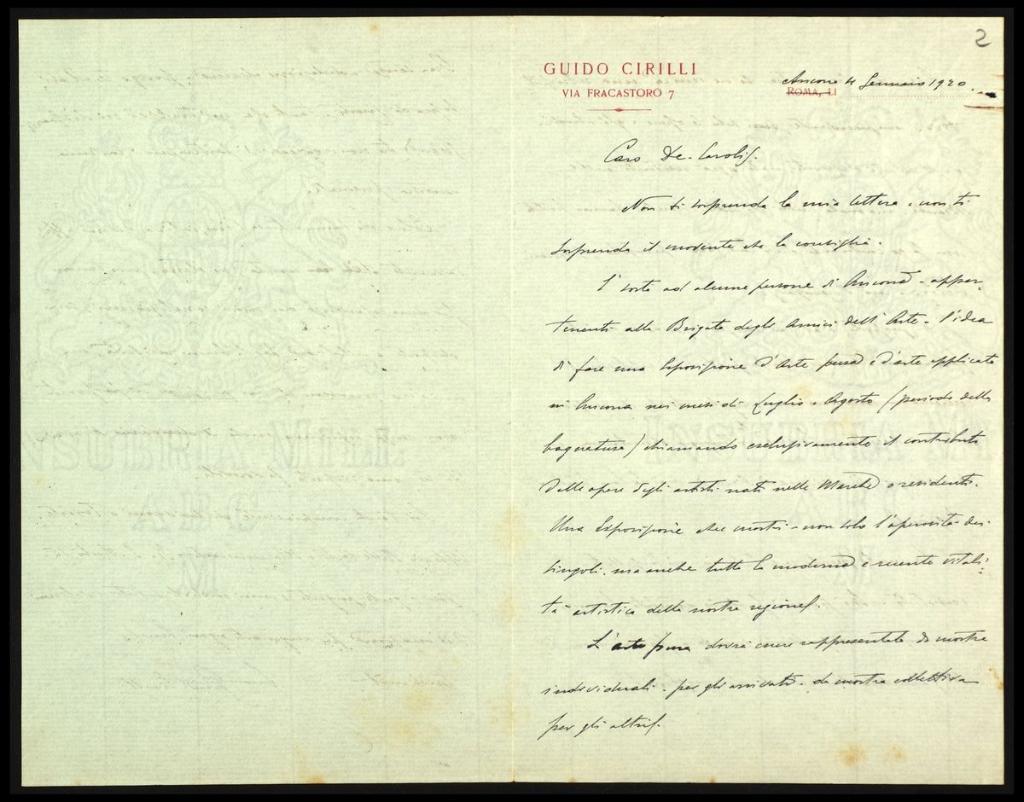 2
GUIDO CIRILLI
VIA FRACASTORO 7
Ancona 4 Gennaio 1920
ROMA, LI
Caro De. Carolis.
Non ti sorprenda la mia lettera e non ti
sorprenda il movente che la consiglia.
È sorta ad alcune persone di Ancona - appar-
tenenti alla Brigata degli Amici dell'Arte - l'idea
di fare una Esposizione d'Arte pura e d'arte applicata
in Ancona nei mesi di Luglio e Agosto (periodo della
bagnatura) chiamando esclusivamente il contributo
delle opere degli artisti nati nelle Marche o residenti.
Una Esposizione che mostri - non solo l'operosità dei
singoli - ma anche tutta la moderna e recente vitali-
tà artistica della nostra regione.
L'arte pura dovrà essere rappresentata da mostre
individuali - per gli arrivati - da mostra collettiva
per gli altri.